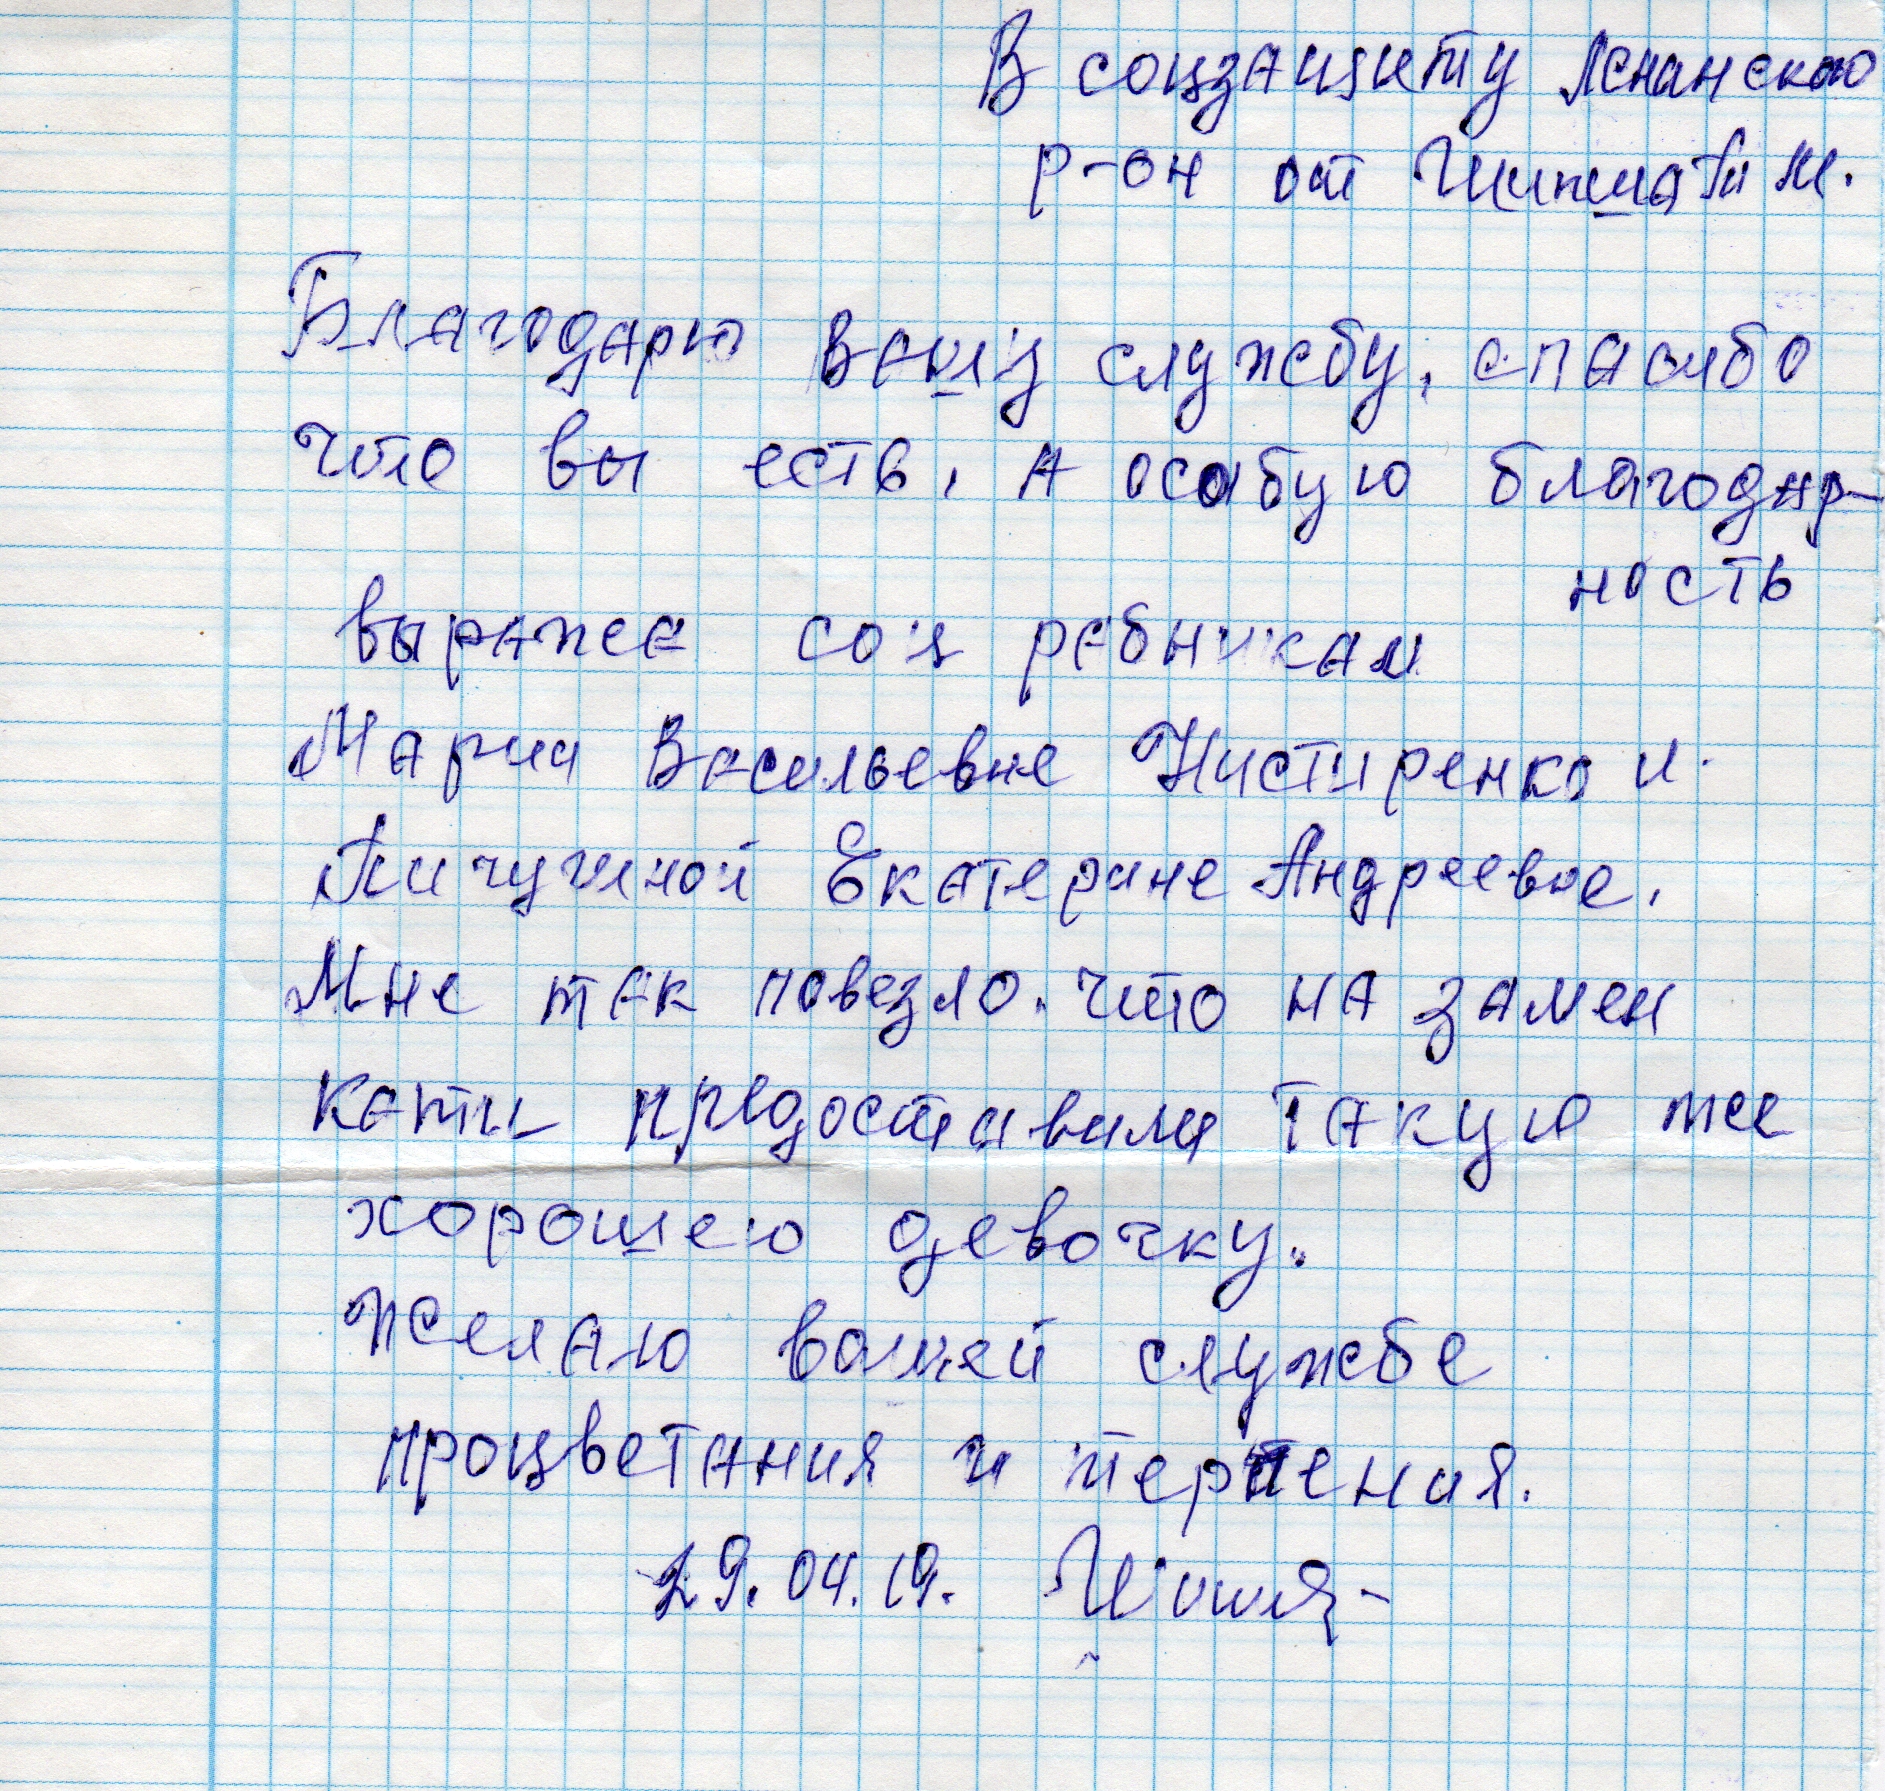 В соцзащиту Ленинского
р-он от Шипша М.
Благодарю вашу службу, спасибо
что вы есть, А особую благодар-
ность
выраже соц рабникам
Марии Васильевне Нистиренко и
Пичугиной Екатерине Андреевне.
Мне так повезло. что на замен
Кати предоставили такую же
хорошею девочку.
Желаю вашей службе
процветания и терпения.
29.04.19.